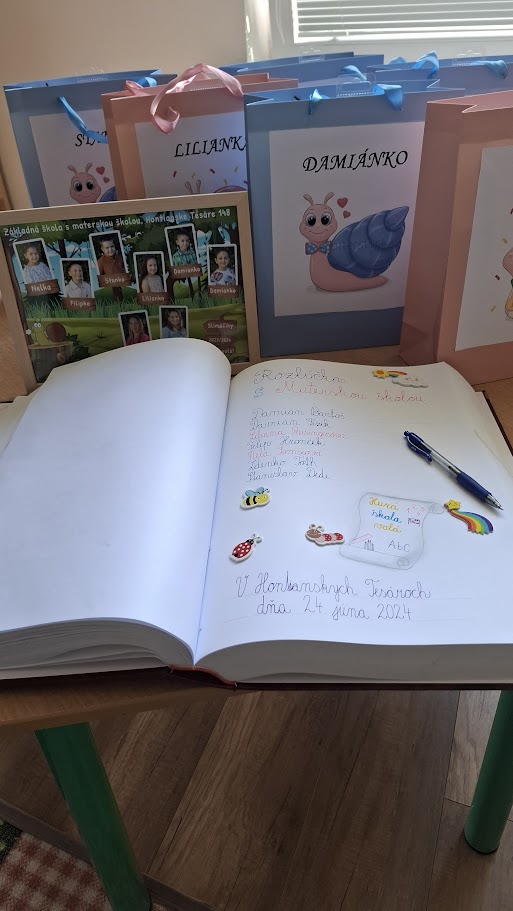 LILIANK
DAMIÁNKO
Základná škola s materskou školou, Hontianske Tesáre 148
Nelka
Filipko
Stanko
Lilianka
Damianko
Damianko
Slimáčiky
2023/2024
Rozlúčka
s Materskou školou
Damian Bartoš
Damian
Liliana
Filip Hronček
Nela
Zdenko Tóth
Stanislav
Hurá
škola
volá
ABC
V Hontianskych Tesároch
dňa 24 júna 2024